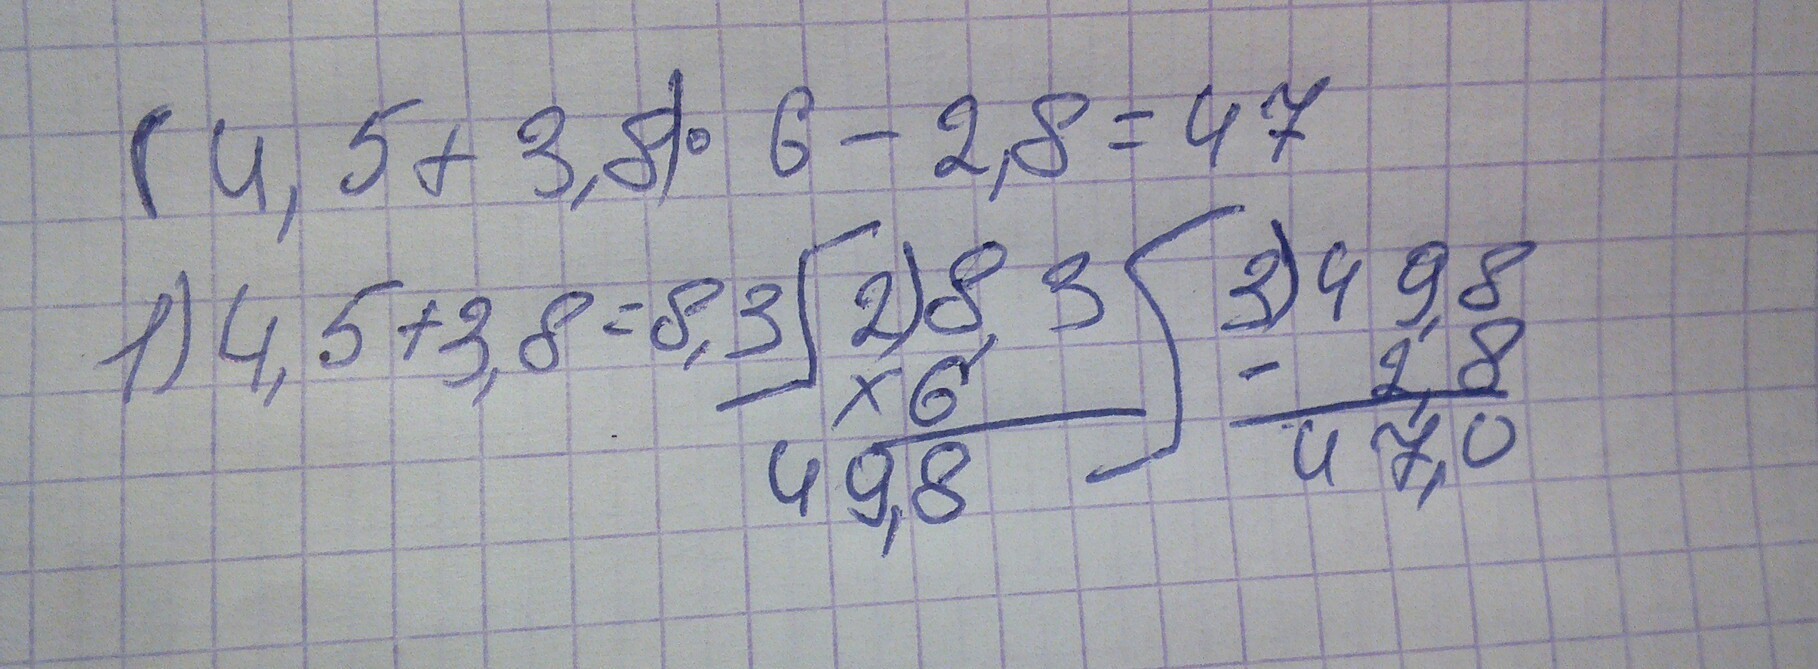 (4,5+3,8)·6-2,8=47
1) 4,5+3,8=8,3 2) 8,3 3) 49,8
×6 - 2,8
49,8 47,0